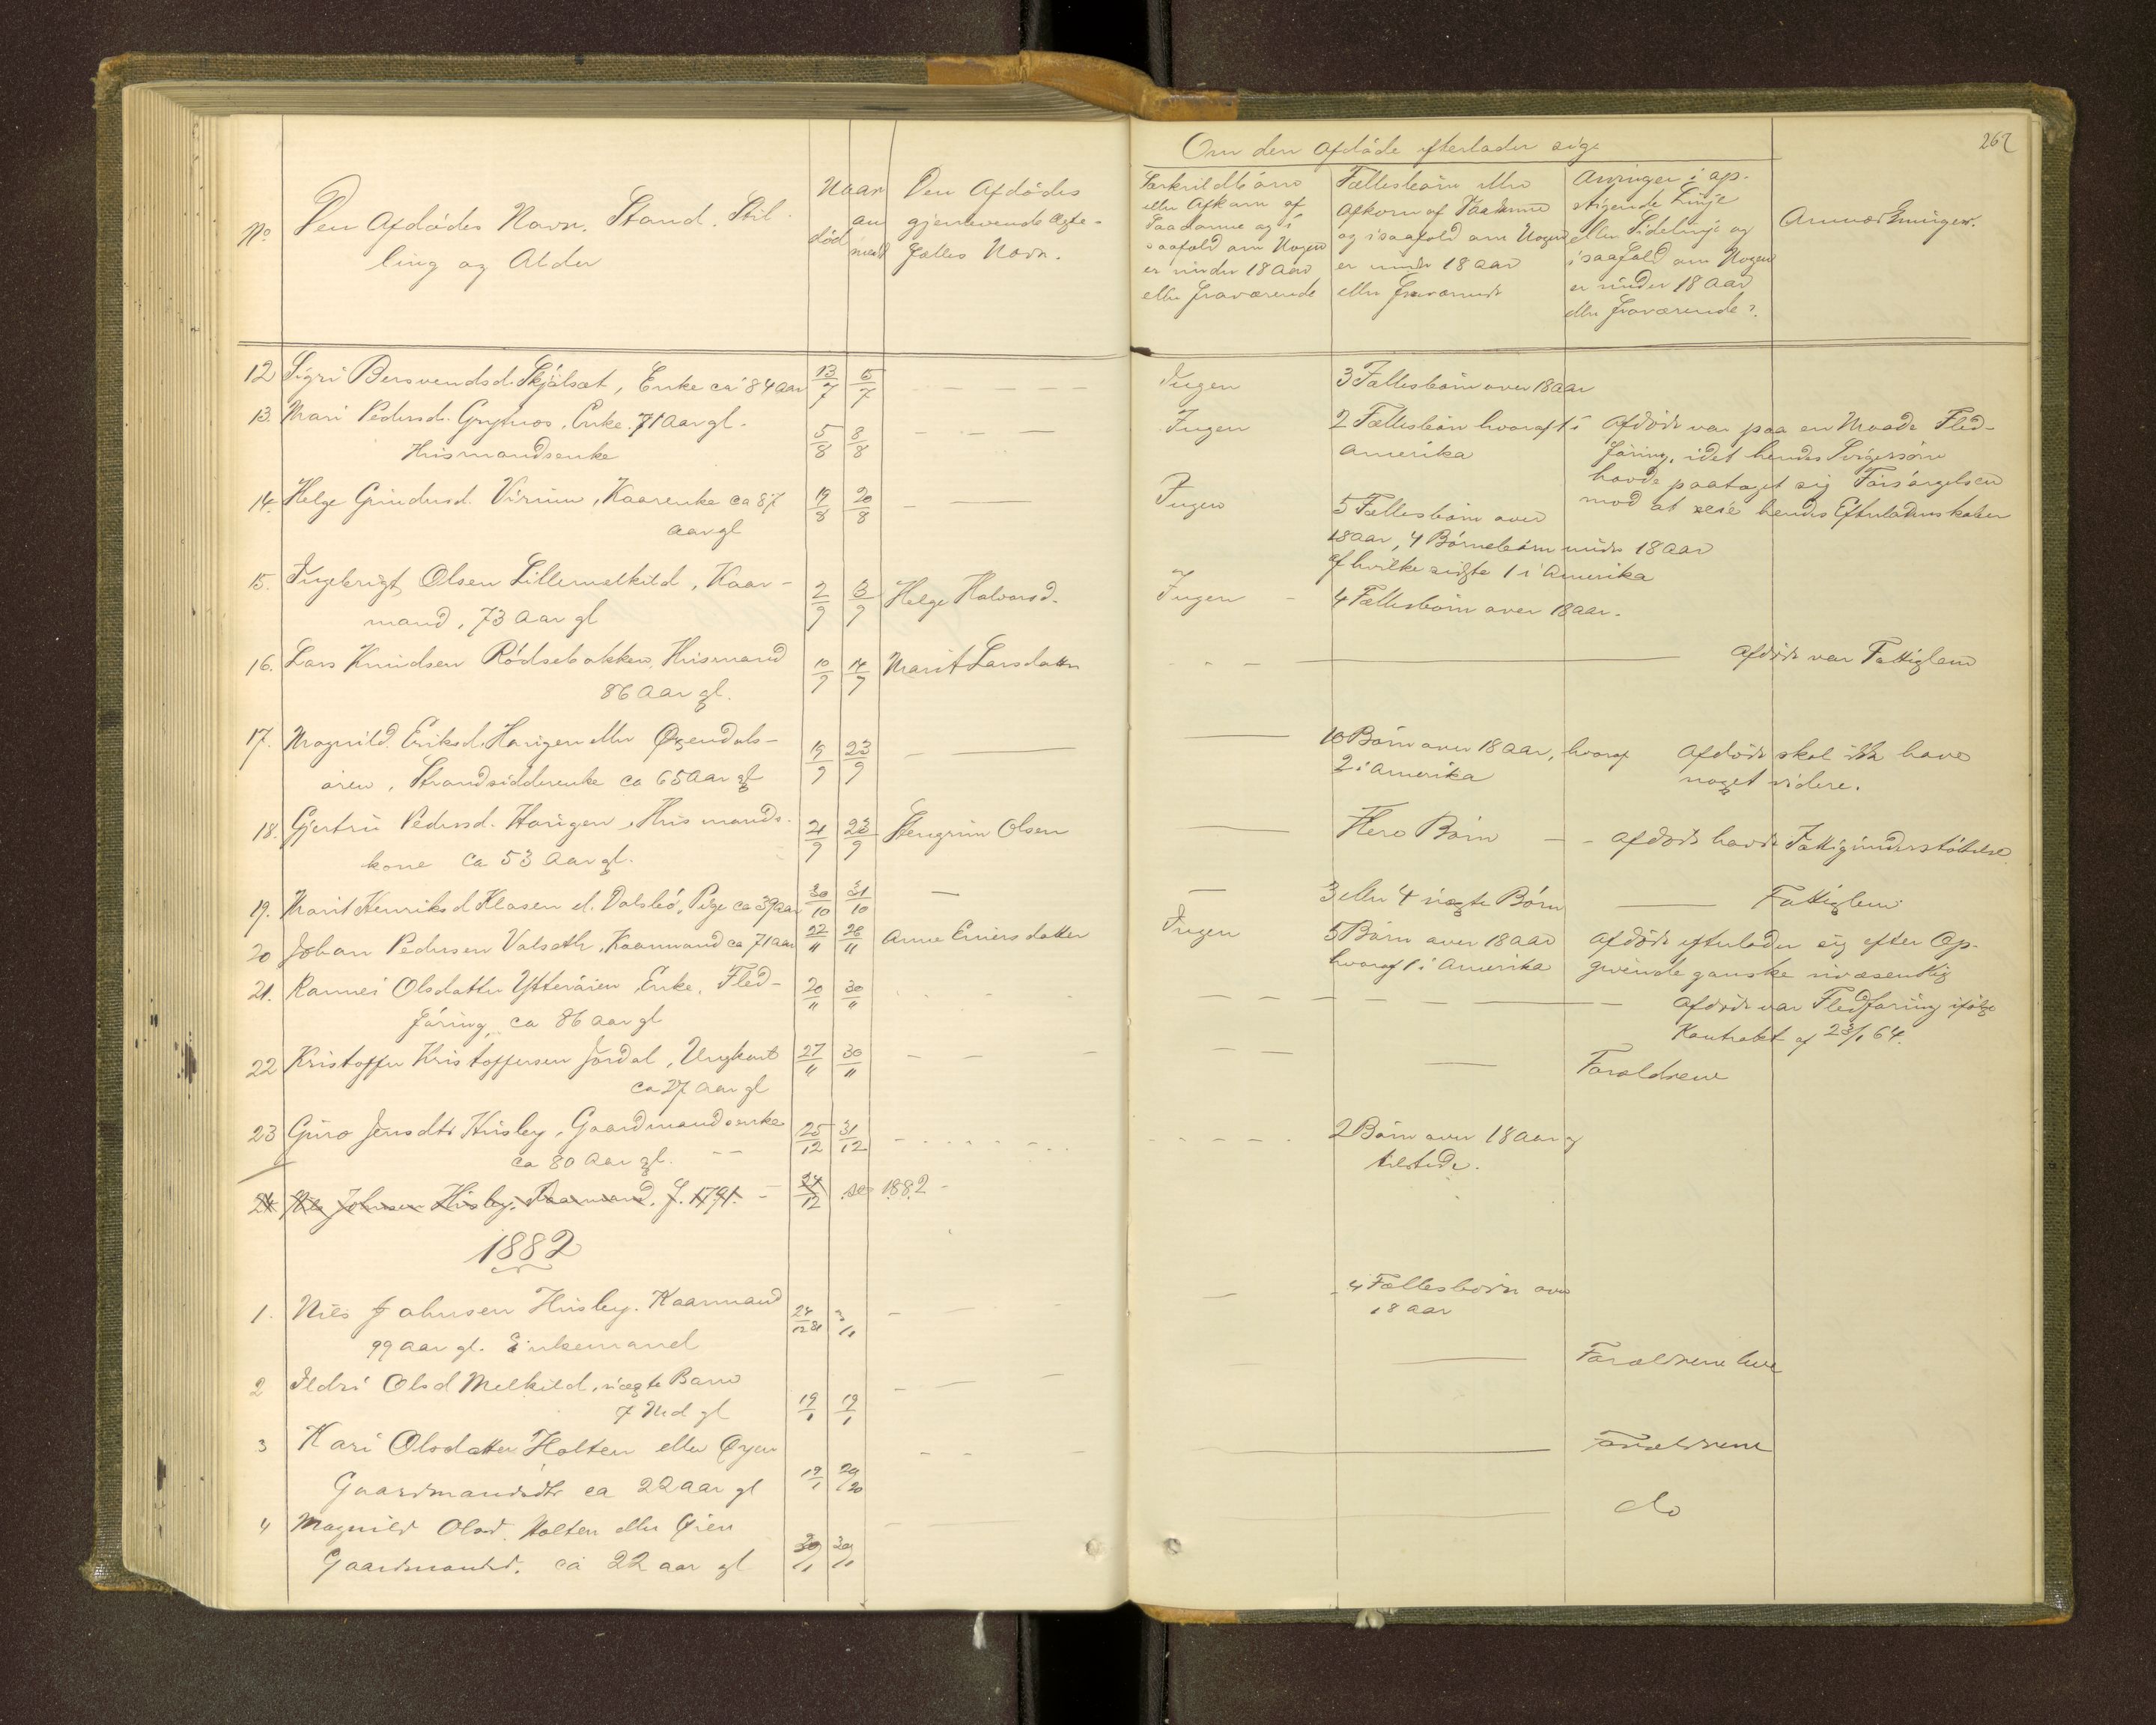 262
Om den Afdöde efterlader sig
No
Den Afdödes Navn, Stand, Stil-
ling og Alder
Naar
död
an
meldt
Den Afdödes
gjenlevende Ægte-
fælles Navn.
Særkuldbörn
eller Afkom af
Saadanne og i
saafald om Nogen
er under 18 Aar
eller fraværende
Fællesbörn eller
Afkom af Saadanne
og i saafald om Nogen
er under 18 Aar
eller fraværende
Arvinger i op-
stigende Linje
eller Sidelinje og
i saafald om Nogen
er under 18 Aar
eller fraværende?
Anmærkninger.
12 Sigri Bersvendsd. Skjölsæt, Enke ca 84 Aar 13/7 5/7 Ingen 3 Fællesbörn over 18 aar
13. Mari Pedersd. Grytnes, Enke. 71 Aar gl.
Husmandsenke 5/8 8/8 Ingen 2 Fællesbörn hvoraf 1 i
Amerika
Afdöde var paa en Maade Fled-
föring, idet hendes Svigersön
havde paataget sig Forsörgelsen
mod at eie hendes Efterladenskaber
14. Helge Gundersd. Virum, Kaarenke ca 87
aar gl 19/8 20/8 Ingen 5 Fællesbörn over
18 aar, 4 Börnebörn under 18 Aar
af hvilke sidste 1 i Amerika
15. Ingebrigt Olsen Lillemelkild, Kaar-
mand, 73 Aar gl 2/9 3/9 Helge Halvorsd. Ingen 4 Fællesbörn over 18 aar.
16. Lars Knudsen Rödsebakken, Husmand
86 Aar gl. 10/9 14/9 Marit Larsdatter Afdöde var Fattiglem
17. Magnild Eriksd. Haugen eller Øxendals-
ören, Strandsidderenke ca 65 Aar gl 19/9 23/9 10 Börn over 18 Aar, hvoraf
2 i Amerika
Afdöde skal ikke have
noget videre.
18. Gjertru Pedersd. Haugen, Husmands-
kone ca 53 Aar gl. 21/9 23/9 Stengrim Olsen Flere Börn Afdöde havde Fattigunderstöttelse
19. Marit Henriksd Klasen el. Dalsbö, Pige ca 39 aar 30/10 31/10 3 eller 4 uægte Börn Fattiglem
20 Johan Pedersen Valsæth, Kaarmand ca 71 aar 22/11 28/11 Anne Einersdatter Ingen 5 Börn over 18 Aar
hvoraf 1 i Amerika
Afdöde efterlader sig efter Op-
givende ganske uvæsentlig
21. Rannei Olsdatter Ytteröien Enke, Fled-
föring, ca 86 Aar gl 20/11 30/11 Afdöde var Fledföring ifölge
Kontrakt af 23/1 64.
22 Kristoffer Kristoffersen Jordal, Ungkarl
ca 27 Aar gl 27/11 30/11 Forældrene
23 Guro Jensdtr Husby, Gaardmandsenke
ca 80 Aar gl. 25/12 31/12 2 Börn over 18 Aar og
tilstede.
24 Nils Johnsen Husby, Kaarmand, f. 1791. 24/12 se 1882
1882
1. Nils Johnsen Husby. Kaarmand
99 Aar gl. Enkemand 24/12 81 3/1 4 Fællesbörn over
18 aar
2 Ildri Olsd Melkild, uægte Barn
7 Md gl 19/1 19/1 Forældrene leve
3 Kari Olsdatter Holten eller Øyen
Gaardmandsdtr ca 22 Aar gl 19/1 Forældrene
4 Magnild Olsd. Holten eller Øien
Gaardmandsd. ca 22 aar gl 30/1 30/1 do